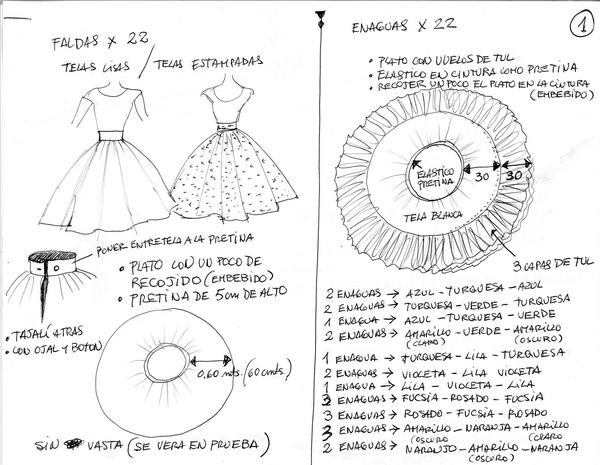 FALDAS X 22
TELAS LISAS / TELAS ESTAMPADAS
PONER ENTRETELA A LA PRETINA
• PLATO CON UN POCO DE
RECOJIDO (EMBEBIDO)
• PRETINA DE 5cm DE ALTO
• TAJALÍ ATRAS
• CON OJAL Y BOTON
0,60 mts. (60 cmts.)
SIN VASTA (SE VERA EN PRUEBA)
1
ENAGUAS X 22
• PLATO CON VUELOS DE TUL
• ELASTICO EN CINTURA COMO PRETINA
• RECOJER UN POCO EL PLATO EN LA CINTURA
(EMBEBIDO)
ELASTICO
PRETINA
30 30
TELA BLANCA
3 CAPAS DE TUL
2 ENAGUAS → AZUL - TURQUESA - AZUL
2 ENAGUAS → TURQUESA - VERDE - TURQUESA
1 ENAGUA → AZUL - TURQUESA - VERDE
2 ENAGUAS → AMARILLO - VERDE - AMARILLO
(CLARO) (OSCURO)
1 ENAGUA → TURQUESA - LILA - TURQUESA
2 ENAGUAS → VIOLETA - LILA VIOLETA
1 ENAGUA → LILA - VIOLETA - LILA
3 ENAGUAS → FUCSIA - ROSADO - FUCSIA
3 ENAGUAS → ROSADO - FUCSIA - ROSADO
3 ENAGUAS → AMARILLO - NARANJA - AMARILLO
(OSCURO CLARO)
2 ENAGUAS → NARANJO - AMARILLO - NARANJA
(OSCURO)